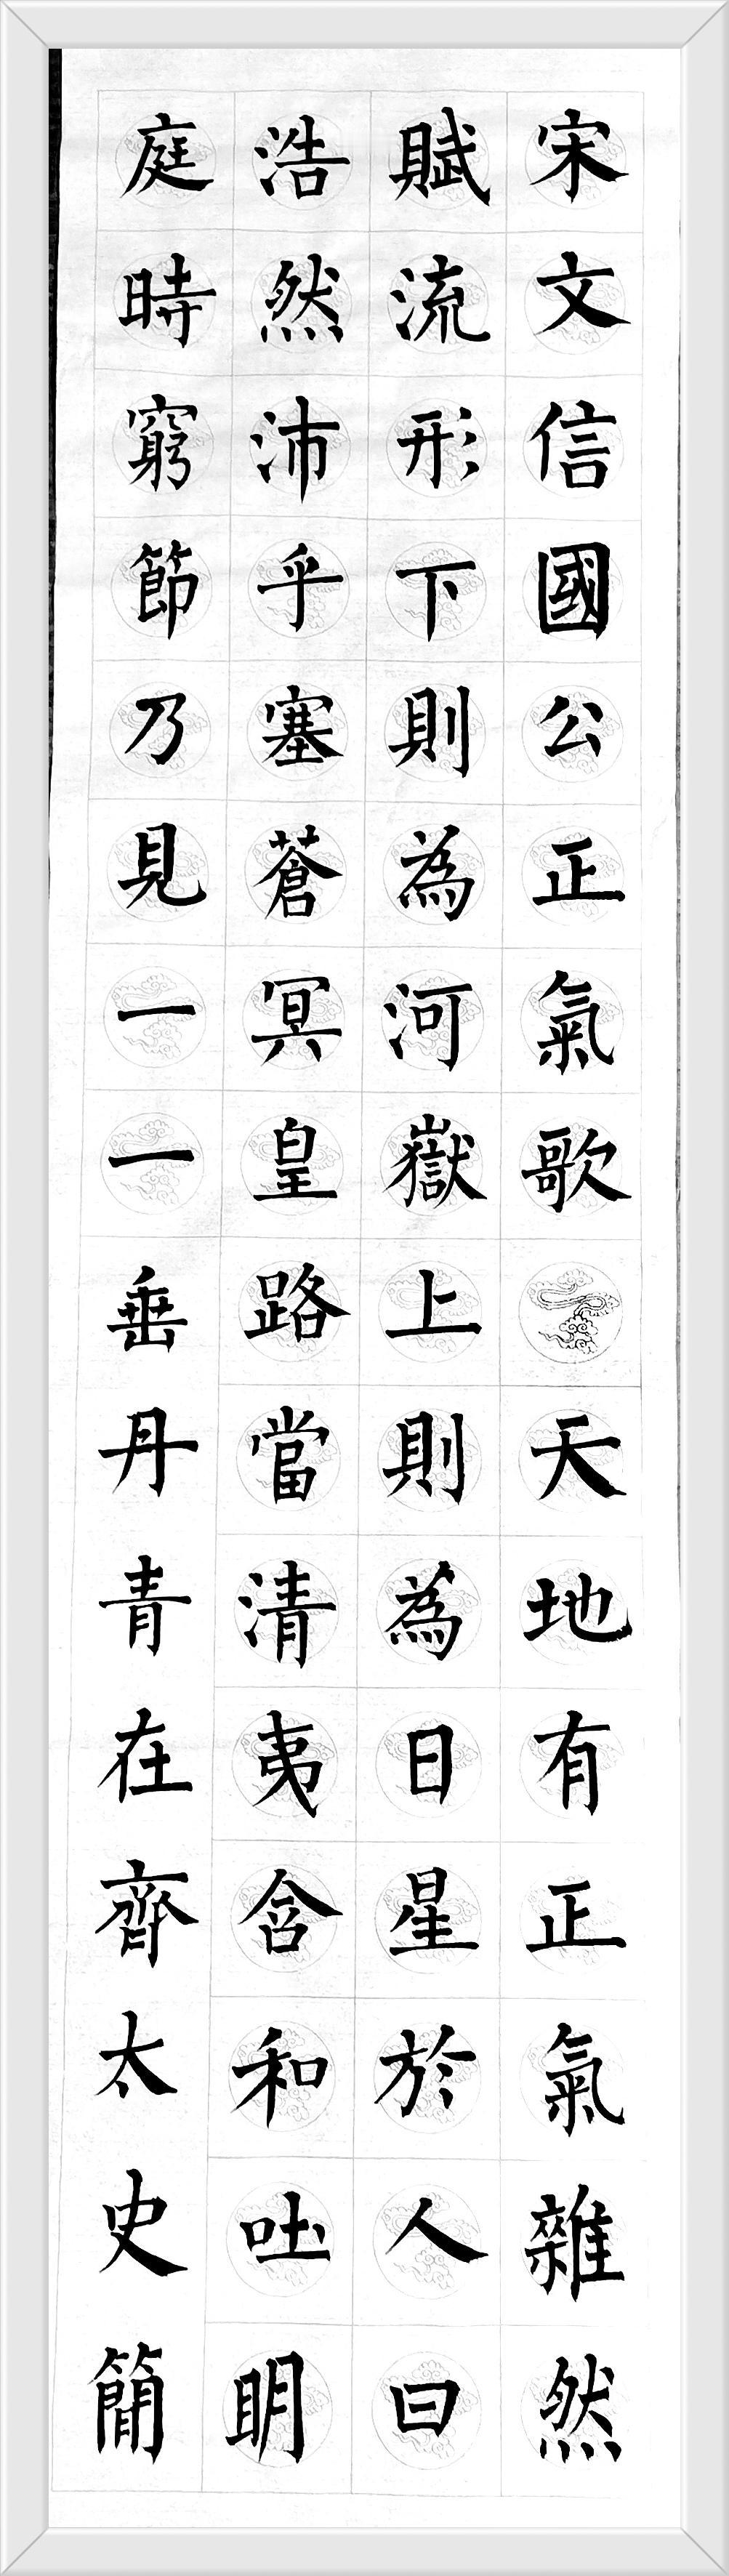 宋文信國公正氣歌天地有正氣雜然
賦流形下則為河嶽上則為日星於人曰
浩然沛乎塞蒼冥皇路當清夷含和吐明
庭時窮節乃見一一垂丹青在齊太史簡